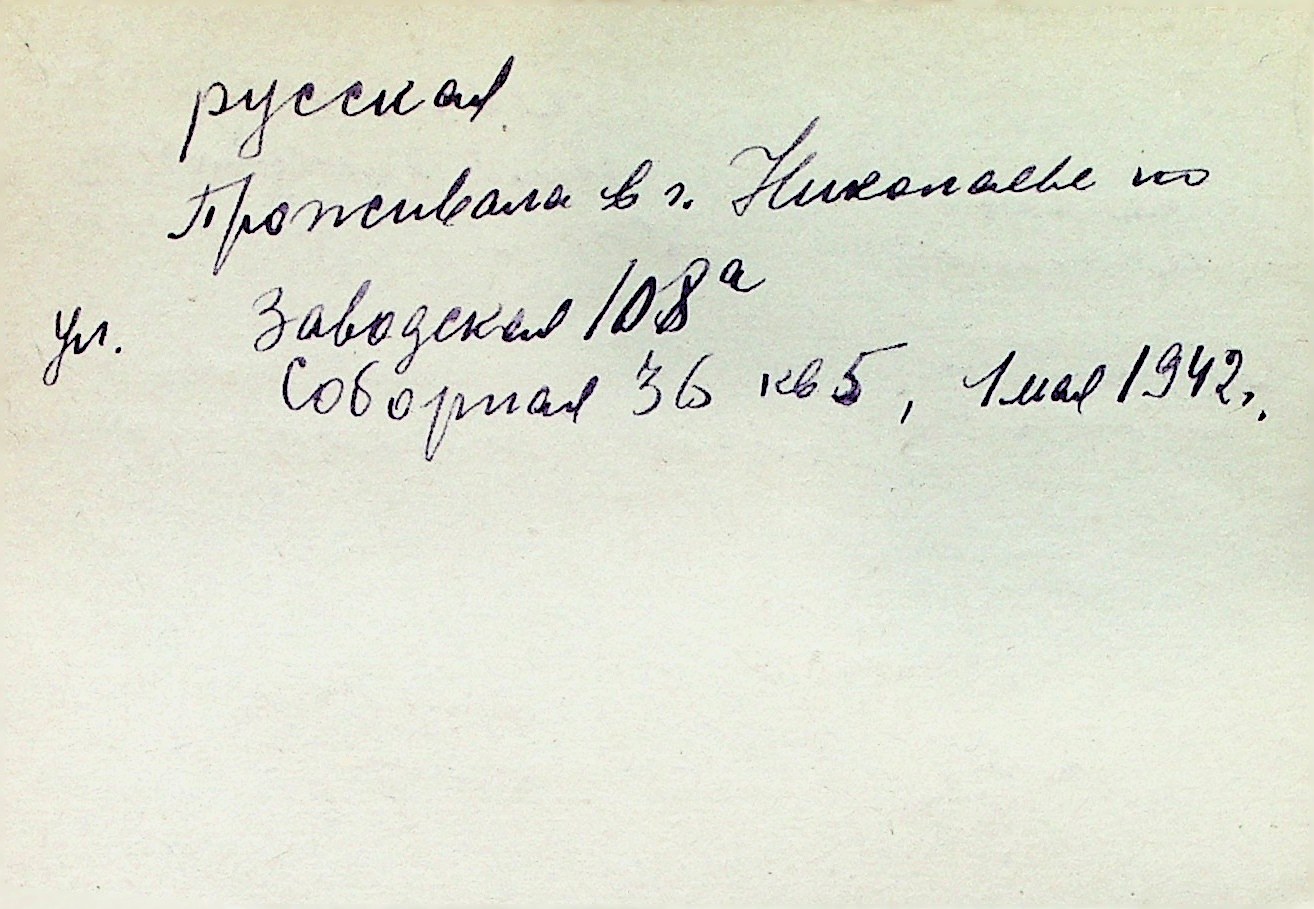 русская
Проживала в г. Николаеве по
ул. Заводская 108а
Соборная 36 кв 5, 1 мая 1942г.